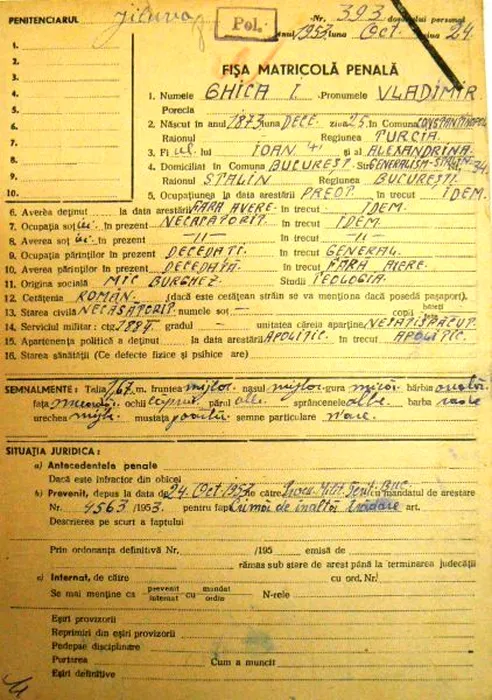 PENITENCIARUL Jilava
Pol.
Nr. 393 dosarului personal
anul 1953 luna Oct ziua 24.
FIȘA MATRICOLĂ PENALĂ
1.
2.
3.
4.
5.
6.
7.
8.
9.
10.
1. Numele GHICA I. Pronumele VLADIMIR
Porecla
2. Născut în anul 1873 luna DECE. ziua 25. în Comuna CONSTANTINOPOL
Raionul Regiunea TURCIA
3. Fiul al. lui IOAN și al ALEXANDRINA.
4. Domiciliat în Comuna BUCUREȘT. Str. GENERALISIM-STALIN 34
Raionul STALIN Regiunea BUCUREȘTI.
5. Ocupațiunea la data arestării PREOT. în trecut IDEM.
6. Averea deținut la data arestării FARA AVERE. în trecut IDEM.
7. Ocupația soț iei. în prezent NECASATORIT. în trecut IDEM.
8. Averea soț iei. în prezent —II— în trecut —II—
9. Ocupația părinților în prezent DECEDATI. în trecut GENERAL.
10. Averea părinților în prezent DECEDATĂ. în trecut FĂRĂ AVERE.
11. Origina socială MIC BURGHEZ. Studii TEOLOGIA.
12. Cetățenia ROMÂN. (dacă este cetățean străin se va menționa dacă posedă pașaport).
13. Starea civilă NECASATORIT. numele soț — copii băieți fete
14. Serviciul militar: ctg. 1894. gradul — unitatea căreia aparține NESATISFACUT.
15. Apartenența politică a deținut la data arestării APOLITIC. în trecut APOLITIC.
16. Starea sănătății (Ce defecte fizice și psihice are)
SEMNALMENTE: Talia 1,67 m. fruntea mijloc. nasul mijloc. gura mică. bărbia ovală
fața ochii căprui. părul alb. sprâncenele albe. barba rade
urechea mijl. mustața poartă semne particulare n'are.
SITUAȚIA JURIDICA:
a) Antecedentele penale
Dacă este infractor din obicei
b) Prevenit, depus la data de 24. Oct. 1953. de către Procu. Milit. Terit. Buc. cu mandatul de arestare
Nr. 4563/1953. pentru fapt Crimă de înaltă trădare art.
Descrierea pe scurt a faptului
Prin ordonanța definitivă Nr. /195 emisă de
rămas sub stare de arest până la terminarea judecății
c) Internat, de către cu ord. Nr.
Se mai menține ca prevenit internat cu mandat ordin N-rele
Eșiri provizorii
Reprimiri din eșiri provizorii
Pedepse disciplinare
Purtarea Cum a muncit
Eșiri definitive